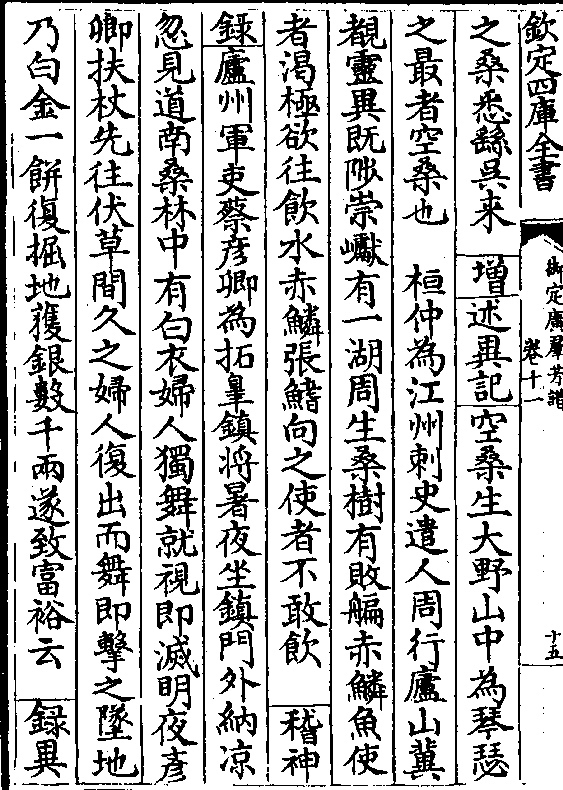 欽定四庫全書
御定廣羣芳譜
卷十一
十五
之桑悉繇吳来 增述異記空桑生大野山中為琴瑟
之最者空桑也 桓仲為江州刺史遣人周行廬山冀
覩靈異既陟崇巘有一湖周生桑樹有敗艑赤鱗魚使
者渴極欲往飲水赤鱗張鰭向之使者不敢飲 稽神
錄廬州軍吏蔡彦卿為拓臯鎮将暑夜坐鎮門外納凉
忽見道南桑林中有白衣婦人獨舞就視即滅明夜彦
卿扶杖先往伏草間久之婦人復出而舞即擊之墜地
乃白金一餅復掘地獲銀數千兩遂致富裕云 録異